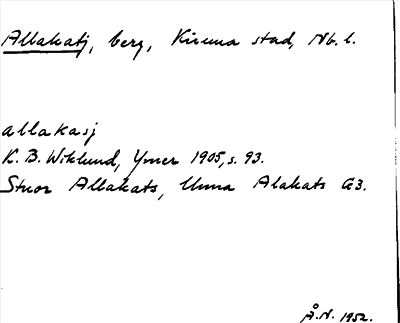 Allakatj, berg, Kiruna stad, Nb. l.
allakasj
K. B. Wiklund, Ymer 1905, s. 93.
Stuor Allakats, Unna Alakats G3.
Å. N. 1952.